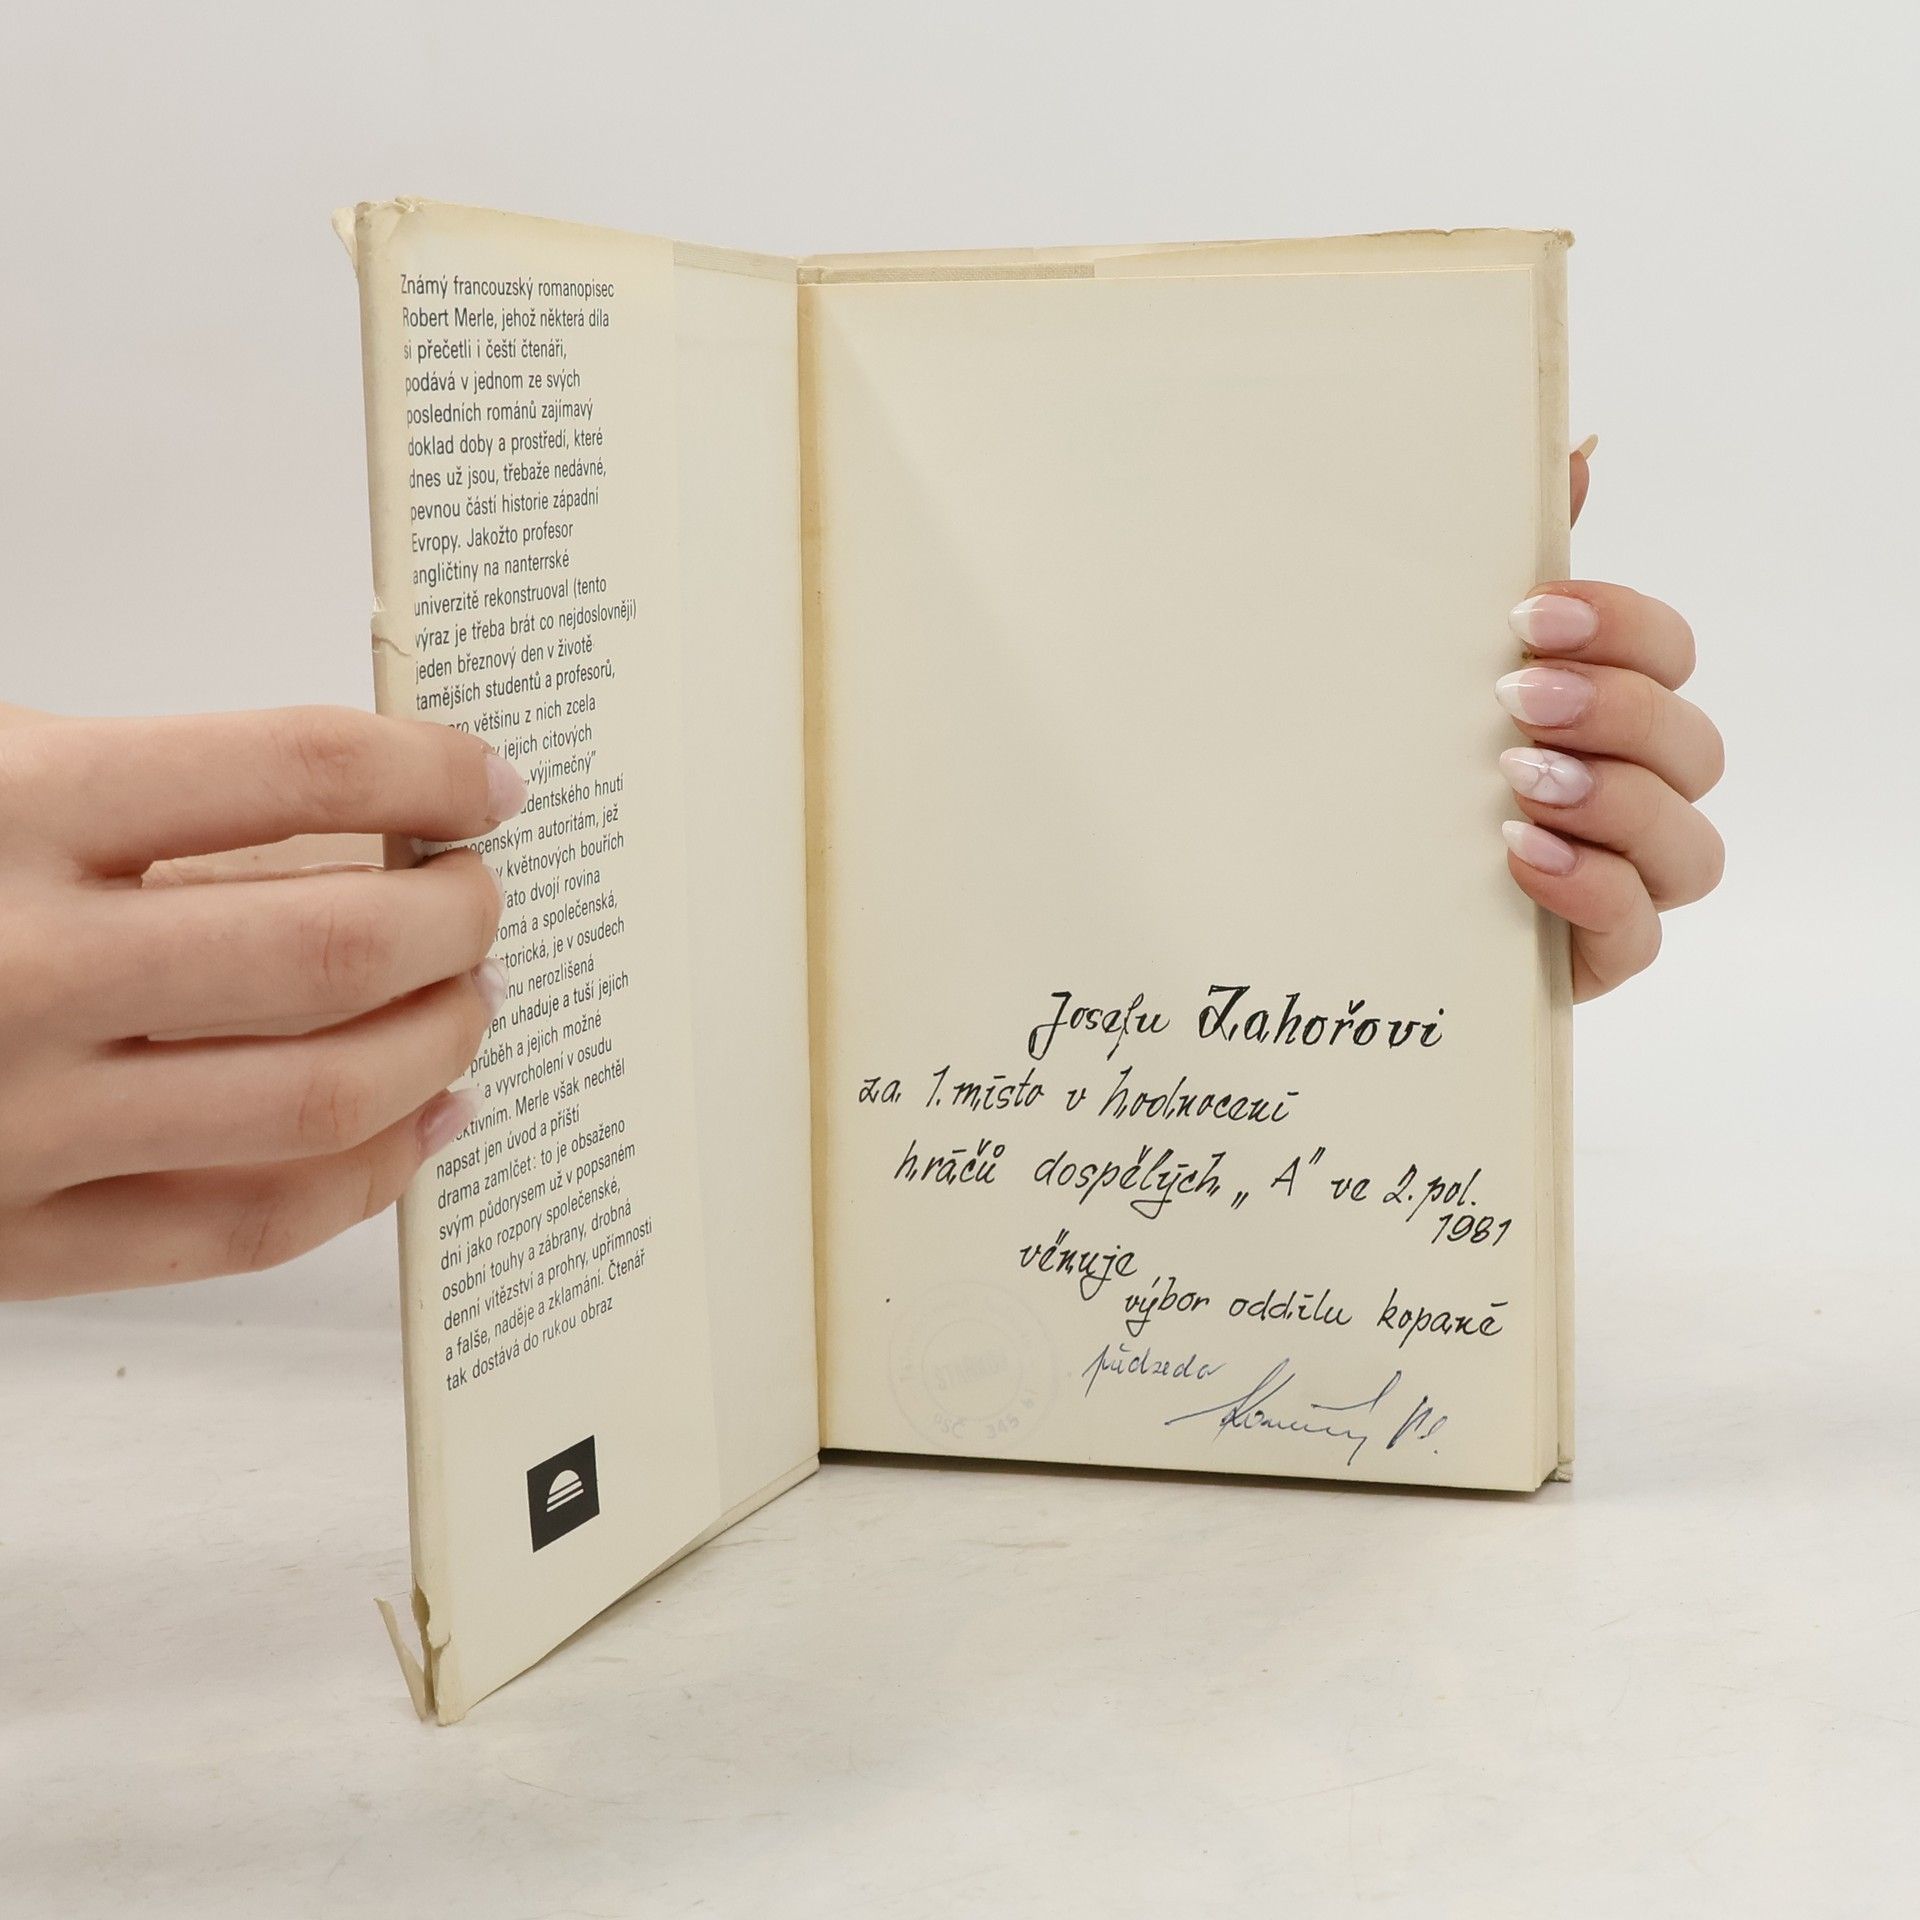 Známý francouzský romanopisec
Robert Merle, jehož některá díla
si přečetli i čeští čtenáři,
podává v jednom ze svých
posledních románů zajímavý
doklad doby a prostředí, které
dnes už jsou, třebaže nedávné,
pevnou částí historie západní
Evropy. Jakožto profesor
angličtiny na nanterrské
univerzitě rekonstruoval (tento
výraz je třeba brát co nejdoslovněji)
jeden březnový den v životě
tamějších studentů a profesorů,
pro většinu z nich zcela
jejich citových
„výjimečný"
hnutí
autoritám, jež
v květnových bouřích
Tato dvojí rovina
a společenská,
je v osudech
nerozlišená
jen uhaduje a tuší jejich
průběh a jejich možné
a vyvrcholení v osudu
Merle však nechtěl
napsat jen úvod a příští
drama zamlčet: to je obsaženo
svým půdorysem už v popsaném
dni jako rozpory společenské,
osobní touhy a zábrany, drobná
denní vítězství a prohry, upřímnosti
a falše, naděje a zklamání. Čtenář
tak dostává do rukou obraz
Josefu Zahořovi
za 1. místo v hodnocení
hráčů dospělých „A" ve 2. pol.
1981
věnuje
výbor oddílu kopané